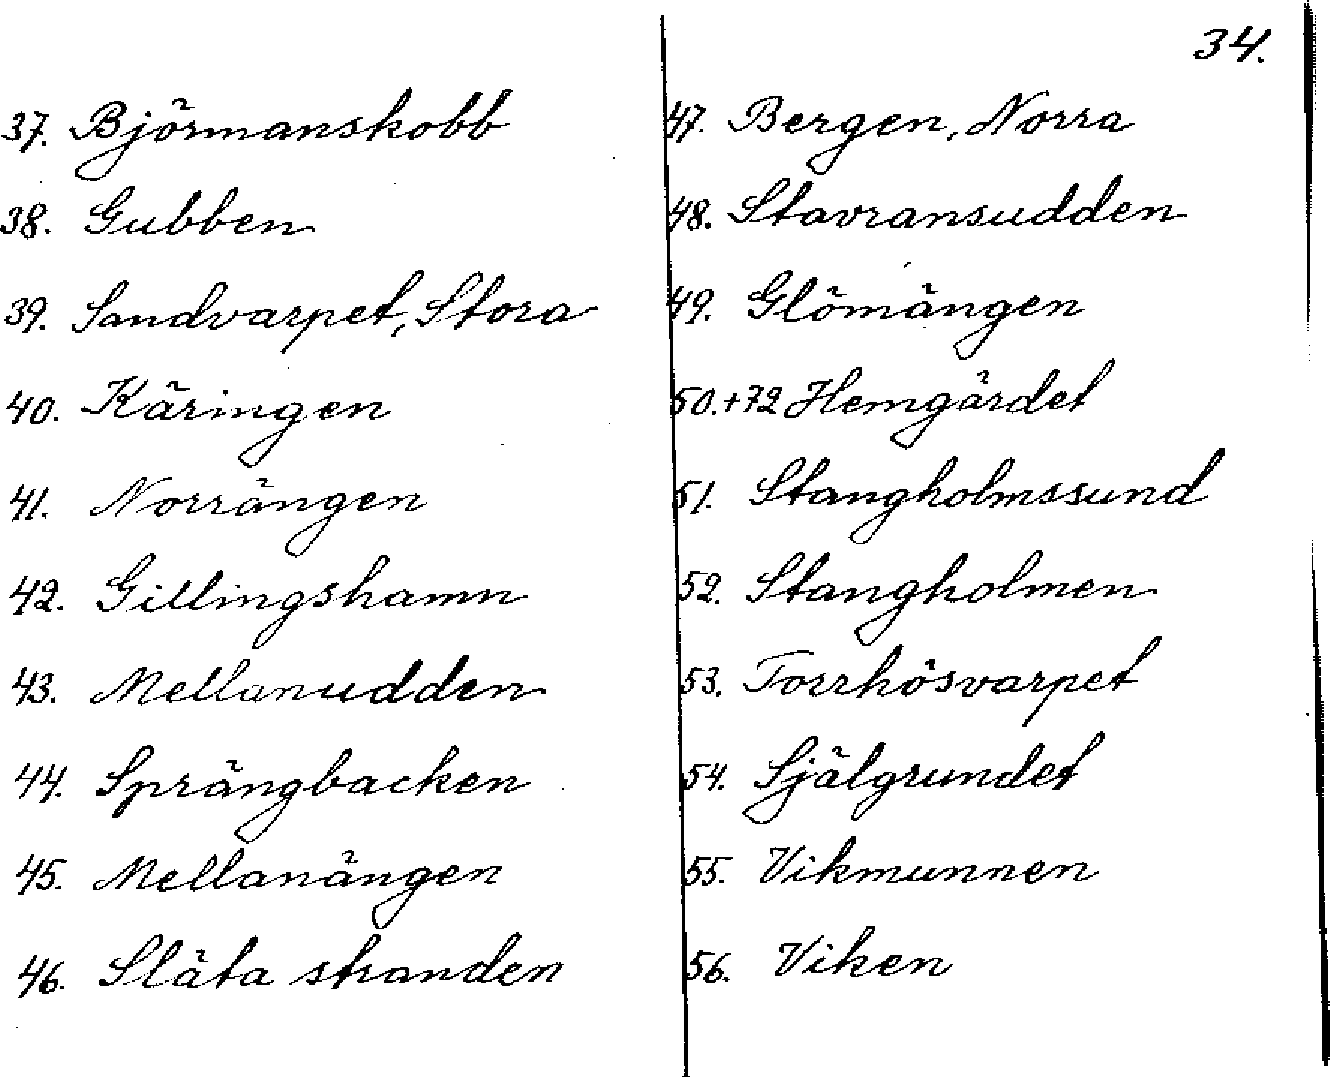 34.
37. Björmanskobb
38. Gubben
39. Sandvarpet, Stora
40. Käringen
41. Norrängen
42. Gillingshamn
43. Mellanudden
44. Sprängbacken
45. Mellanängen
46. Släta stranden
47. Bergen, Norra
48. Stavransudden
49. Glömängen
50.+72 Hemgärdet
51. Stangholmssund
52. Stangholmen
53. Torrhösvarpet
54. Själgrundet
55. Vikmunnen
56. Viken